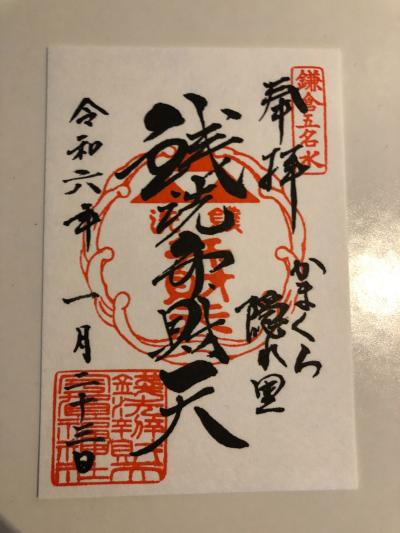 鎌倉五名水
奉拝
かまくら
隠れ里
銭洗弁財天
令和六年一月二十三日